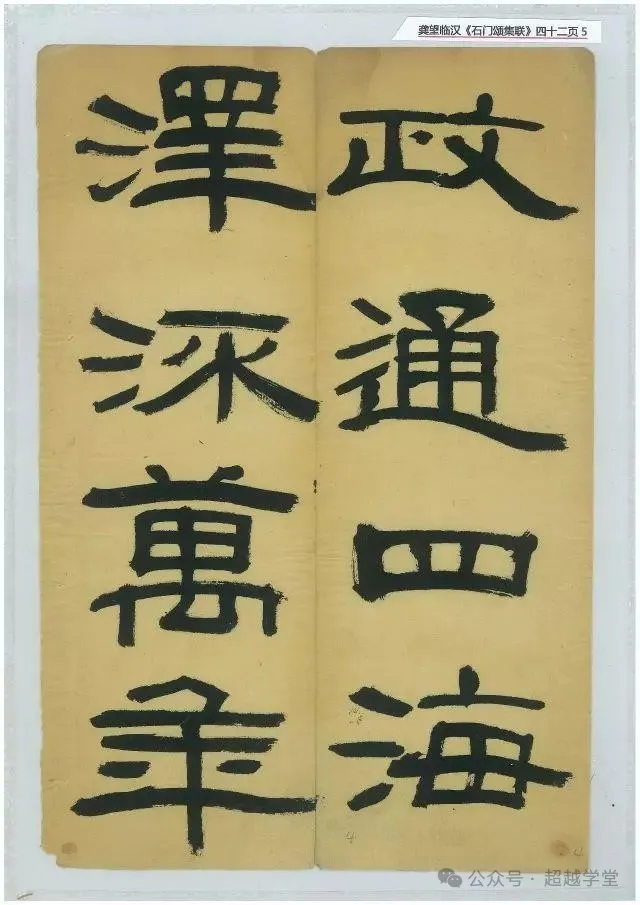 龚望临汉《石门颂集联》四十二页 5
政通四海
澤深萬年
4
4
公众号 · 超越学堂